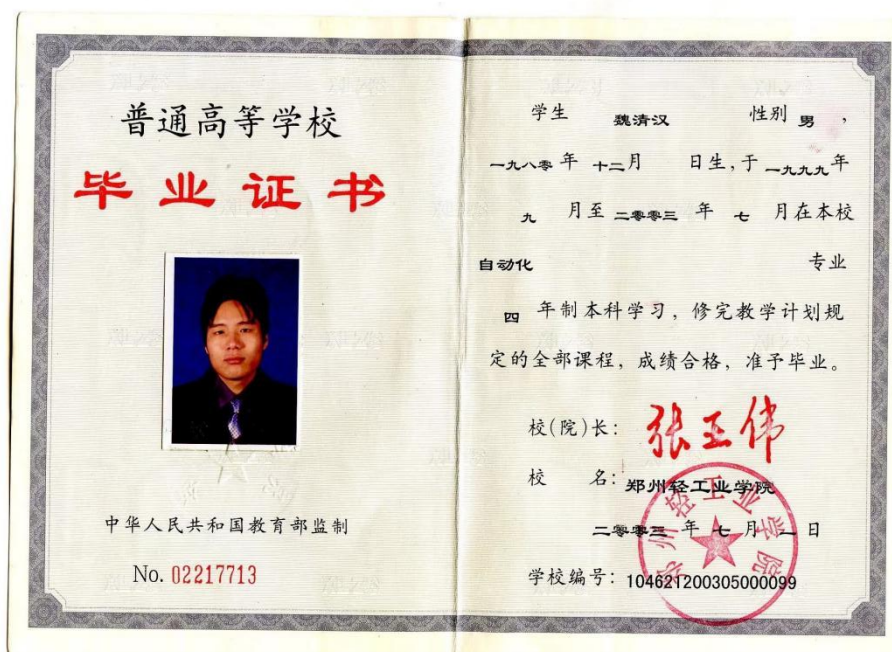 普通高等学校
毕业证书
中华人民共和国教育部监制
No. 02217713
学生 魏清汉 性别 男，
一九八零年 十二月 日生，于 一九九九年
九 月至 二零零三 年 七 月在本校
自动化 专业
四 年制本科学习，修完教学计划规
定的全部课程，成绩合格，准予毕业。
校(院)长：
校 名：郑州轻工业学院
二零零三 年 七 月 一 日
学校编号：104621200305000099
郑州轻工业学院